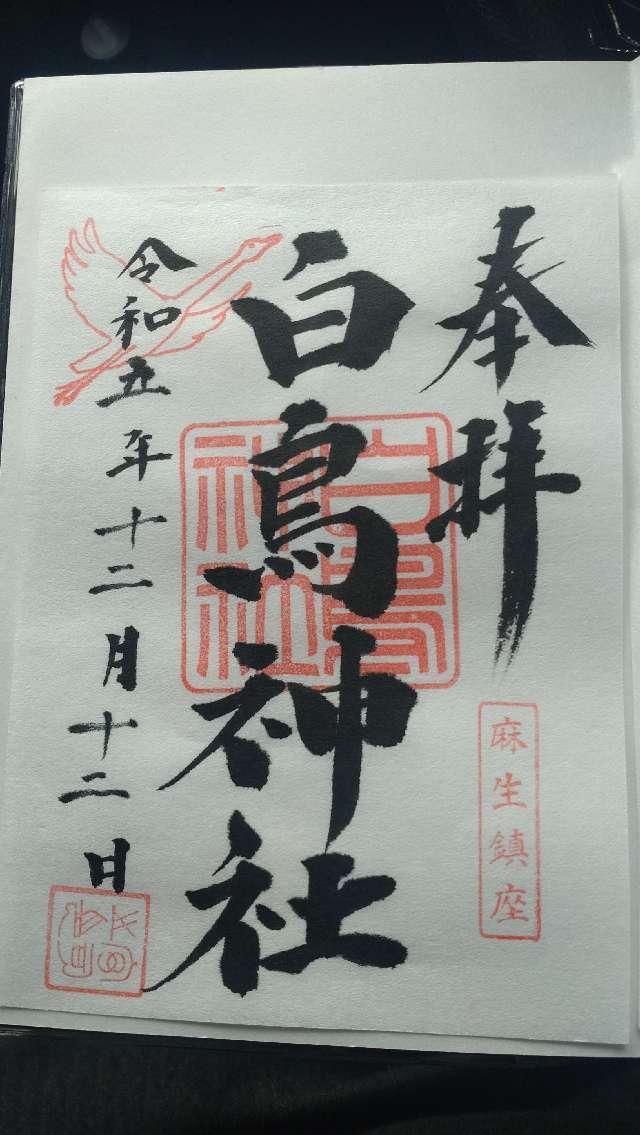 奉拝
麻生鎮座
白鳥神社
白鳥
神社
令和五年十二月十二日